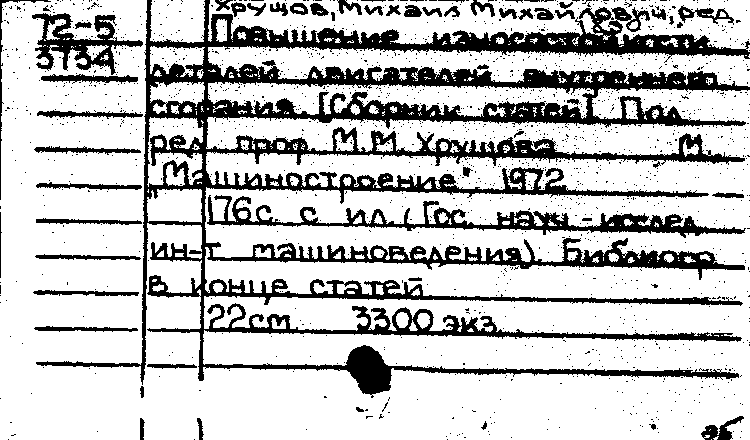 Хрущов, Михаил Михайлович, ред.
72-5 Повышение износостойкости
3734 деталей двигателей внутреннего
сгорания. [Сборник статей] Под
ред. проф. М.М. Хрущова М.
"Машиностроение", 1972
176 с. с ил. (Гос. науч-исслед.
ин-т машиноведения). Библиогр.
в конце статей
22 см 3300 экз.